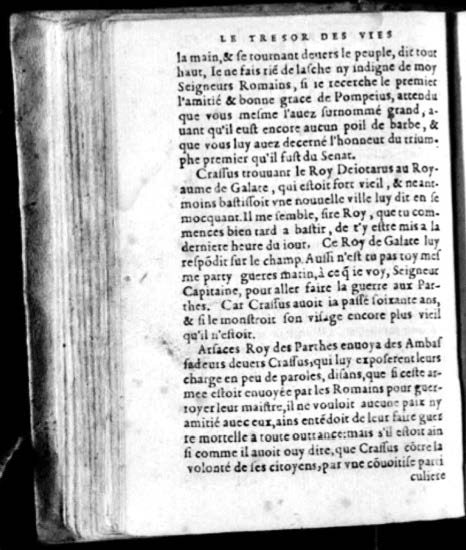 LE TRESOR DES VIES
la main, & se tournant deuers le peuple, dit tout
haut, Ie ne fais rié de lasche ny indigne de moy
Seigneurs Romains, si ie recerche le premier
l'amitié & bonne grace de Pompeius, attendu
que vous mesme l'auez surnommé grand, a-
uant qu'il eust encore aucun poil de barbe, &
que vous luy auez decerné l'honneur du trium-
phe premier qu'il fust du Senat.
Crassus trouuant le Roy Deiotarus au Roy-
aume de Galate, qui estoit fort vieil, & neant-
moins bastissoit vne nouuelle ville luy dit en se
mocquant. Il me semble, sire Roy, que tu com-
mences bien tard a bastir, de t'y estre mis a la
derniere heure du iour. Ce Roy de Galate luy
respõdit sur le champ. Aussi n'est tu pas toy mes
me party gueres matin, à ce q̃ ie voy, Seigneur
Capitaine, pour aller faire la guerre aux Par-
thes. Car Crassus auoit ia passé soixante ans,
& si le monstroit son visage encore plus vieil
qu'il n'estoit.
Arsaces Roy des Parthes enuoya des Ambas
sadeurs deuers Crassus, qui luy exposerent leurs
charge en peu de paroles, disans, que si ceste ar-
mee estoit enuoyée par les Romains pour guer-
royer leur maistre, il ne vouloit aucune paix ny
amitié auec eux, ains entédoit de leur faire guer
re mortelle à toute outrance: mais s'il estoit ain
si comme il auoit ouy dire, que Crassus cõtre la
volonté de ses citoyens, par vne cõuoitise parti
culiere